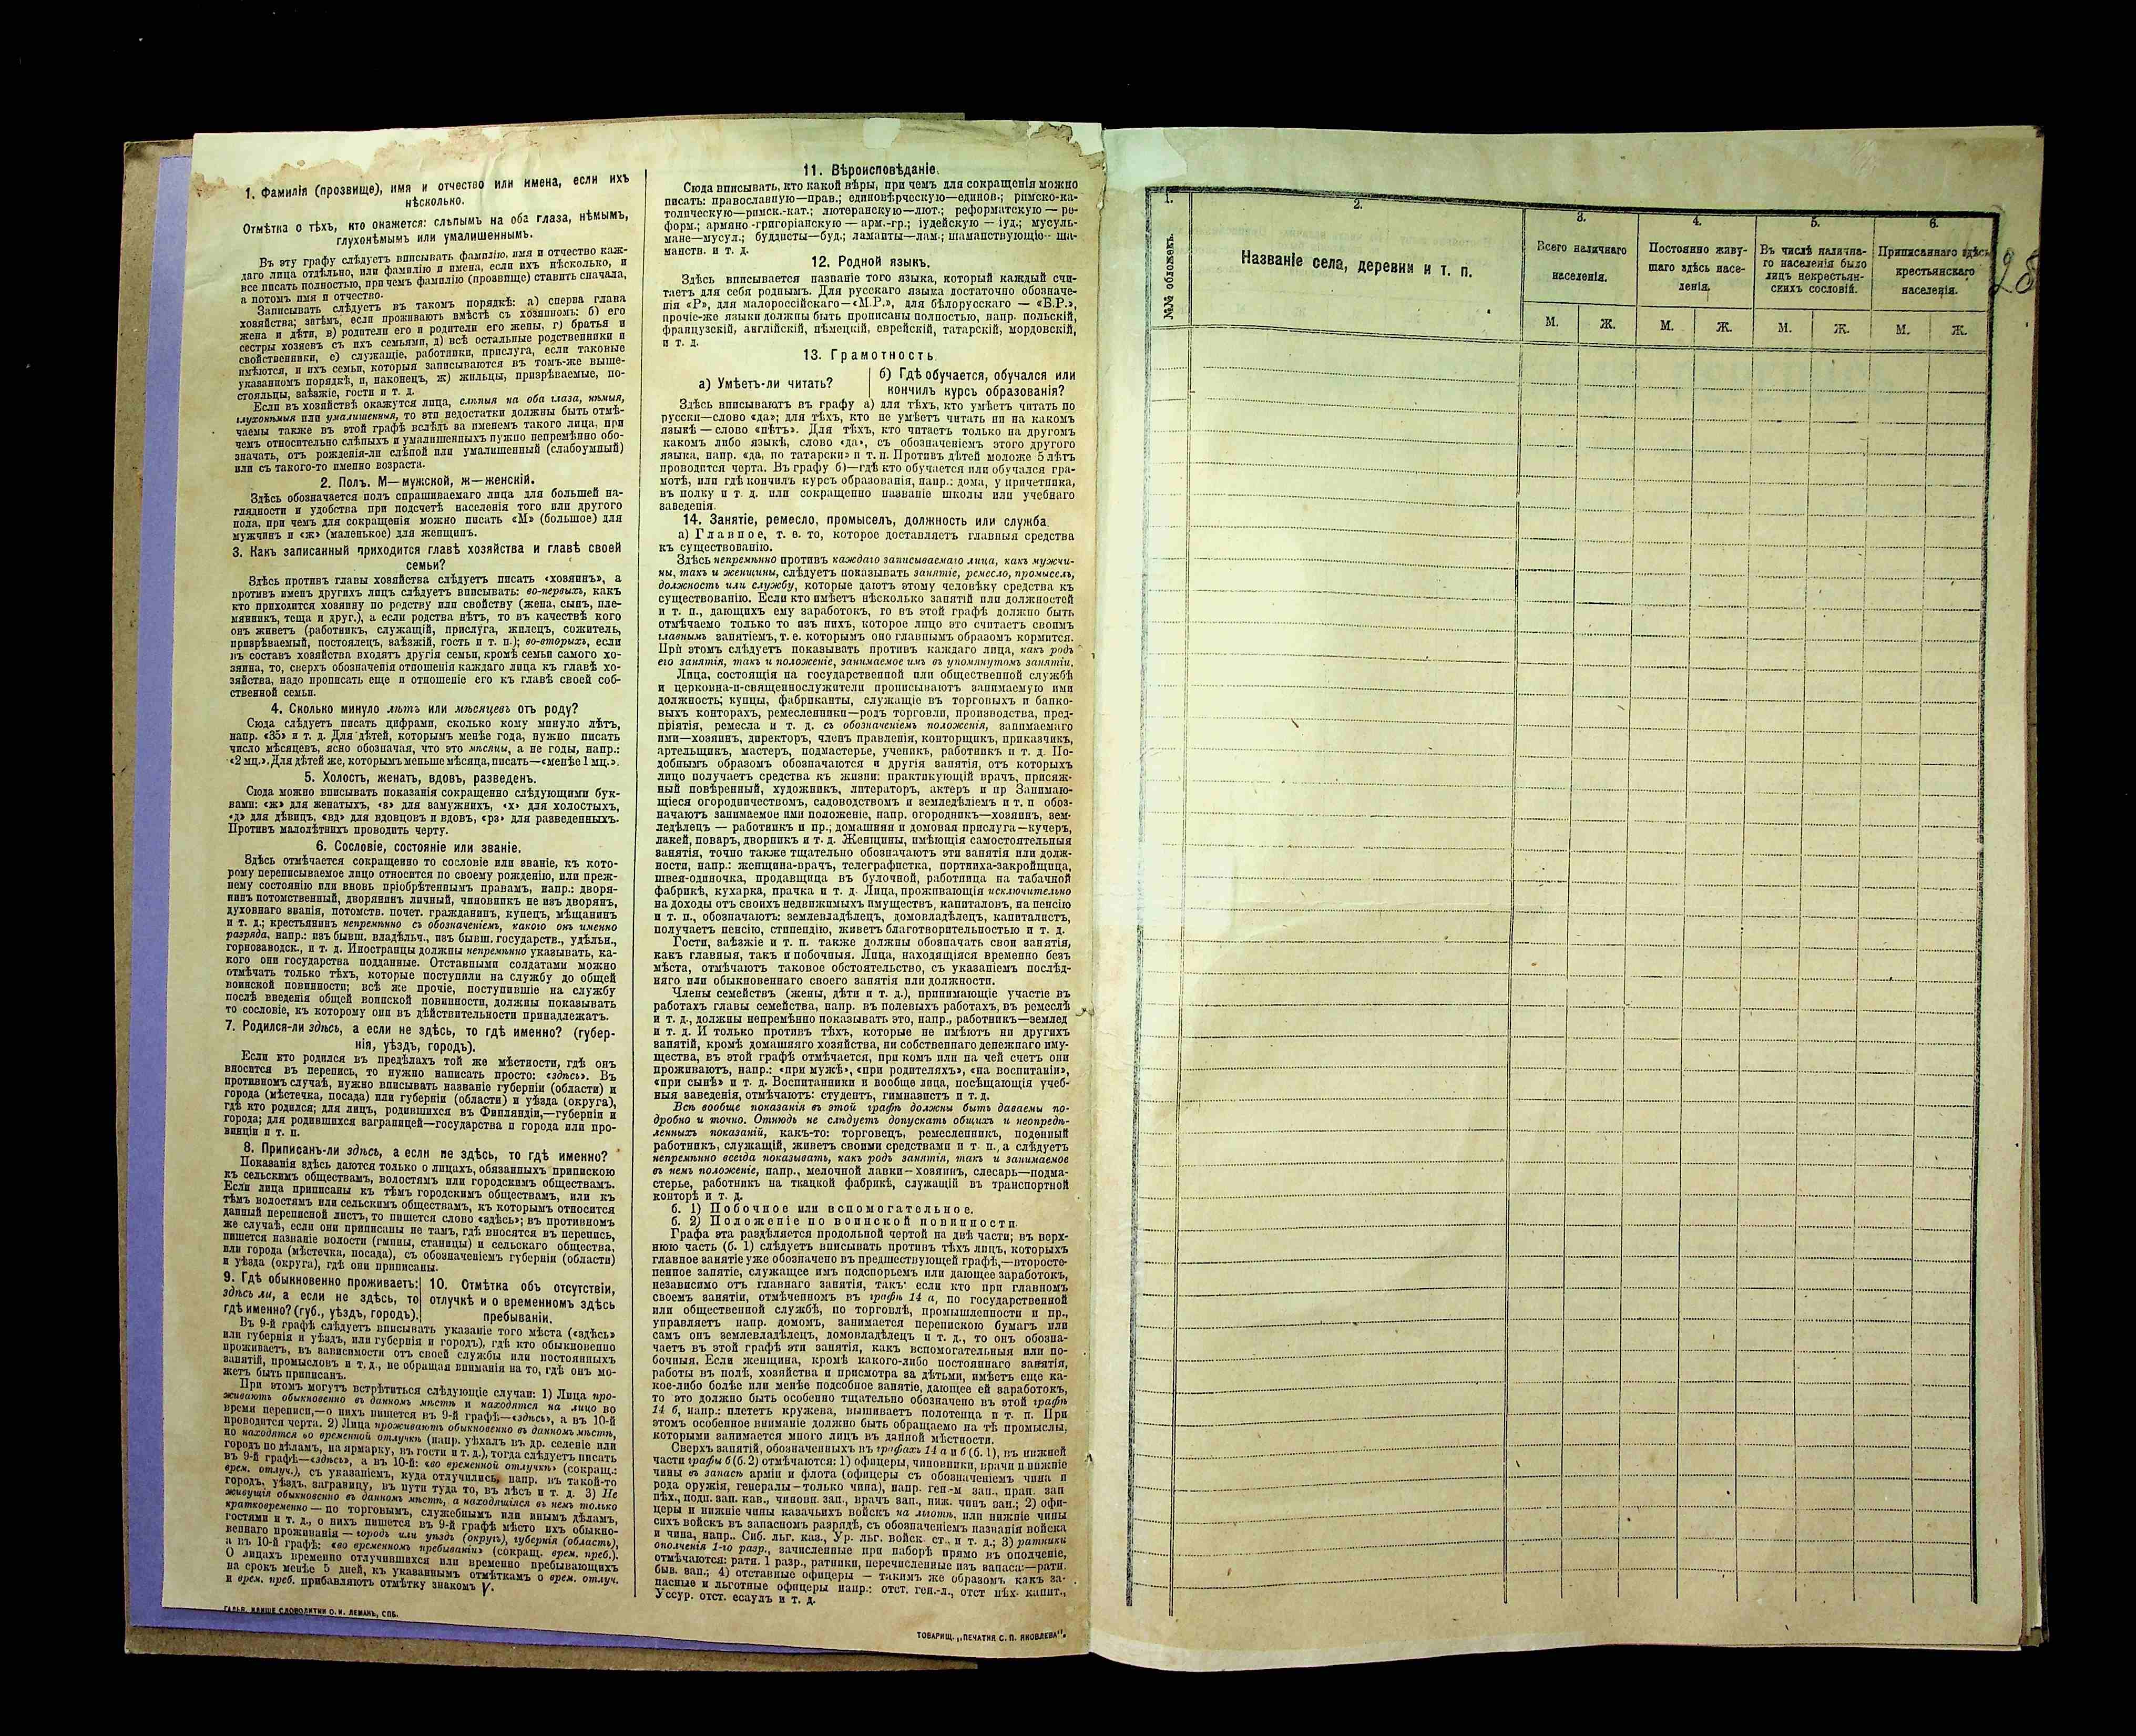 1. Фамилія (прозвище), имя и отчество или имена, если ихъ
нѣсколько.
Отмѣтка о тѣхъ, кто окажется: слѣпымъ на оба глаза, нѣмымъ,
глухонѣмымъ или умалишеннымъ.
Въ эту графу слѣдуетъ вписывать фамилію, имя и отчество каж-
даго лица отдѣльно, или фамилію и имена, если ихъ нѣсколько, и
все писать полностью, при чемъ фамилію (прозвище) ставить сначала,
а потомъ имя и отчество.
Записывать слѣдуетъ въ такомъ порядкѣ: а) сперва глава
хозяйства; затѣмъ, если проживаютъ вмѣстѣ съ хозяиномъ: б) его
жена и дѣти, в) родители его и родители его жены, г) братья и
сестры хозяевъ съ ихъ семьями, д) всѣ остальные родственники и
свойственники, е) служащіе, работники, прислуга, если таковые
имѣются, и ихъ семьи, которыя записываются въ томъ-же выше-
указанномъ порядкѣ, и, наконецъ, ж) жильцы, призрѣваемые, по-
стояльцы, заѣзжіе, гости и т. д.
Если въ хозяйствѣ окажутся лица, слѣпыя на оба глаза, нѣмыя,
глухонѣмыя или умалишенныя, то эти недостатки должны быть отмѣ-
чаемы также въ этой графѣ вслѣдъ за именемъ такого лица, при
чемъ относительно слѣпыхъ и умалишенныхъ нужно непремѣнно обо-
значать, отъ рожденія-ли слѣпой или умалишенный (слабоумный)
или съ такого-то именно возраста.
2. Полъ. М—мужской, ж—женскій.
Здѣсь обозначается полъ спрашиваемаго лица для большей на-
глядности и удобства при подсчетѣ населенія того или другого
пола, при чемъ для сокращенія можно писать «М» (большое) для
мужчинъ и «ж» (маленькое) для женщинъ.
3. Какъ записанный приходится главѣ хозяйства и главѣ своей
семьи?
Здѣсь противъ главы хозяйства слѣдуетъ писать «хозяинъ», а
противъ именъ другихъ лицъ слѣдуетъ вписывать: во-первыхъ, какъ
кто приходится хозяину по родству или свойству (жена, сынъ, пле-
мянникъ, теща и друг.), а если родства нѣтъ, то въ качествѣ кого
онъ живетъ (работникъ, служащій, прислуга, жилецъ, сожитель,
призрѣваемый, постоялецъ, заѣзжій, гость и т. п.); во-вторыхъ, если
въ составъ хозяйства входятъ другія семьи, кромѣ семьи самого хо-
зяина, то, сверхъ обозначенія отношенія каждаго лица къ главѣ хо-
зяйства, надо прописать еще и отношеніе его къ главѣ своей соб-
ственной семьи.
4. Сколько минуло лѣтъ или мѣсяцевъ отъ роду?
Сюда слѣдуетъ писать цифрами, сколько кому минуло лѣтъ,
напр. «35» и т. д. Для дѣтей, которымъ менѣе года, нужно писать
число мѣсяцевъ, ясно обозначая, что это мѣсяцы, а не годы, напр.:
«2 мц.». Для дѣтей же, которымъ меньше мѣсяца, писать—«менѣе 1 мц.».
5. Холостъ, женатъ, вдовъ, разведенъ.
Сюда можно вписывать показанія сокращенно слѣдующими бук-
вами: «ж» для женатыхъ, «з» для замужнихъ, «х» для холостыхъ,
«д» для дѣвицъ, «вд» для вдовцовъ и вдовъ, «рз» для разведенныхъ.
Противъ малолѣтнихъ проводить черту.
6. Сословіе, состояніе или званіе.
Здѣсь отмѣчается сокращенно то сословіе или званіе, къ кото-
рому переписываемое лицо относится по своему рожденію, или преж-
нему состоянію или вновь пріобрѣтеннымъ правамъ, напр.: дворя-
нинъ потомственный, дворянинъ личный, чиновникъ не изъ дворянъ,
духовнаго званія, потомств. почет. гражданинъ, купецъ, мѣщанинъ
и т. д.; крестьянинъ непремѣнно съ обозначеніемъ, какого онъ именно
разряда, напр.: изъ бывш. владѣльч., изъ бывш. государств., удѣльн.,
горнозаводск., и т. д. Иностранцы должны непремѣнно указывать, ка-
кого они государства подданные. Отставными солдатами можно
отмѣчать только тѣхъ, которые поступили на службу до общей
воинской повинности; всѣ же прочіе, поступившіе на службу
послѣ введенія общей воинской повинности, должны показывать
то сословіе, къ которому они въ дѣйствительности принадлежатъ.
7. Родился-ли здѣсь, а если не здѣсь, то гдѣ именно? (губер-
нія, уѣздъ, городъ).
Если кто родился въ предѣлахъ той же мѣстности, гдѣ онъ
вносится въ перепись, то нужно написать просто: «здѣсь». Въ
противномъ случаѣ, нужно вписывать названіе губерніи (области) и
города (мѣстечка, посада) или губерніи (области) и уѣзда (округа),
гдѣ кто родился; для лицъ, родившихся въ Финляндіи,—губерніи и
города; для родившихся заграницей—государства и города или про-
винціи и т. п.
8. Приписанъ-ли здѣсь, а если не здѣсь, то гдѣ именно?
Показанія здѣсь даются только о лицахъ, обязанныхъ припискою
къ сельскимъ обществамъ, волостямъ или городскимъ обществамъ.
Если лица приписаны къ тѣмъ городскимъ обществамъ, или къ
тѣмъ волостямъ или сельскимъ обществамъ, къ которымъ относится
данный переписной листъ, то пишется слово «здѣсь»; въ противномъ
же случаѣ, если они приписаны не тамъ, гдѣ вносятся въ перепись,
пишется названіе волости (гмины, станицы) и сельскаго общества,
или города (мѣстечка, посада), съ обозначеніемъ губерніи (области)
и уѣзда (округа), гдѣ они приписаны.
9. Гдѣ обыкновенно проживаетъ:
здѣсь ли, а если не здѣсь, то
гдѣ именно? (губ., уѣздъ, городъ).
10. Отмѣтка объ отсутствіи,
отлучкѣ и о временномъ здѣсь
пребываніи.
Въ 9-й графѣ слѣдуетъ вписывать указаніе того мѣста («здѣсь»
или губернія и уѣздъ, или губернія и городъ), гдѣ кто обыкновенно
проживаетъ, въ зависимости отъ своей службы или постоянныхъ
занятій, промысловъ и т. д., не обращая вниманія на то, гдѣ онъ мо-
жетъ быть приписанъ.
При этомъ могутъ встрѣтиться слѣдующіе случаи: 1) Лица про-
живаютъ обыкновенно въ данномъ мѣстѣ и находятся на лицо во
время переписи,—о нихъ пишется въ 9-й графѣ—«здѣсь», а въ 10-й
проводится черта. 2) Лица проживаютъ обыкновенно въ данномъ мѣстѣ,
но находятся во временной отлучкѣ (напр. уѣхалъ въ др. селеніе или
городъ по дѣламъ, на ярмарку, въ гости и т. д.), тогда слѣдуетъ писать
въ 9-й графѣ—«здѣсь», а въ 10-й: «во временной отлучкѣ» (сокращ.:
врем. отлуч.), съ указаніемъ, куда отлучились, напр. въ такой-то
городъ, уѣздъ, заграницу, въ пути туда то, въ лѣсъ и т. д. 3) Не
живущія обыкновенно въ данномъ мѣстѣ, а находящіяся въ немъ только
кратковременно — по торговымъ, служебнымъ или инымъ дѣламъ,
гостями и т. д., о нихъ пишется въ 9-й графѣ мѣсто ихъ обыкно-
веннаго проживанія — городъ или уѣздъ (округъ), губернія (область),
а въ 10-й графѣ: «во временномъ пребываніи» (сокращ. врем. преб.).
О лицахъ временно отлучившихся или временно пребывающихъ
на срокъ менѣе 5 дней, къ указаннымъ отмѣткамъ о врем. отлуч.
и врем. преб. прибавляютъ отмѣтку знакомъ V.
О. И. ЛЕМАНЪ, СПБ.
11. Вѣроисповѣданіе.
Сюда вписывать, кто какой вѣры, при чемъ для сокращенія можно
писать: православную—прав.; единовѣрческую—единов.; римско-ка-
толическую—римск.-кат.; лютеранскую—лют.; реформатскую — ре-
форм.; армяно-григоріанскую — арм.-гр.; іудейскую — іуд.; мусуль-
мане—мусул.; буддисты—буд.; ламаиты—лам.; шаманствующіе—ша-
манств. и т. д.
12. Родной языкъ.
Здѣсь вписывается названіе того языка, который каждый счи-
таетъ для себя роднымъ. Для русскаго языка достаточно обозначе-
нія «Р», для малороссійскаго—«М.Р.», для бѣлорусскаго — «Б.Р.»,
прочіе-же языки должны быть прописаны полностью, напр. польскій,
французскій, англійскій, нѣмецкій, еврейскій, татарскій, мордовскій,
и т. д.
13. Грамотность
а) Умѣетъ-ли читать?
б) Гдѣ обучается, обучался или
кончилъ курсъ образованія?
Здѣсь вписываютъ въ графу а) для тѣхъ, кто умѣетъ читать по
русски—слово «да»; для тѣхъ, кто не умѣетъ читать ни на какомъ
языкѣ — слово «нѣтъ». Для тѣхъ, кто читаетъ только на другомъ
какомъ либо языкѣ, слово «да», съ обозначеніемъ этого другого
языка, напр. «да, по татарски» и т. п. Противъ дѣтей моложе 5 лѣтъ
проводится черта. Въ графу б)—гдѣ кто обучается или обучался гра-
мотѣ, или гдѣ кончилъ курсъ образованія, напр.: дома, у причетника,
въ полку и т. д. или сокращенно названіе школы или учебнаго
заведенія.
14. Занятіе, ремесло, промыселъ, должность или служба.
а) Главное, т. е. то, которое доставляетъ главныя средства
къ существованію.
Здѣсь непремѣнно противъ каждаго записываемаго лица, какъ мужчи-
ны, такъ и женщины, слѣдуетъ показывать занятіе, ремесло, промыселъ,
должность или службу, которые даютъ этому человѣку средства къ
существованію. Если кто имѣетъ нѣсколько занятій или должностей
и т. п., дающихъ ему заработокъ, то въ этой графѣ должно быть
отмѣчаемо только то изъ нихъ, которое лицо это считаетъ своимъ
главнымъ занятіемъ, т. е. которымъ оно главнымъ образомъ кормится.
При этомъ слѣдуетъ показывать противъ каждаго лица, какъ родъ
его занятія, такъ и положеніе, занимаемое имъ въ упомянутомъ занятіи.
Лица, состоящія на государственной или общественной службѣ
и церковно-и-священнослужители прописываютъ занимаемую ими
должность; купцы, фабриканты, служащіе въ торговыхъ и банко-
выхъ конторахъ, ремесленники—родъ торговли, производства, пред-
пріятія, ремесла и т. д. съ обозначеніемъ положенія, занимаемаго
ими—хозяинъ, директоръ, членъ правленія, конторщикъ, приказчикъ,
артельщикъ, мастеръ, подмастерье, ученикъ, работникъ и т. д. По-
добнымъ образомъ обозначаются и другія занятія, отъ которыхъ
лицо получаетъ средства къ жизни: практикующій врачъ, присяж-
ный повѣренный, художникъ, литераторъ, актеръ и пр Занимаю-
щіеся огородничествомъ, садоводствомъ и земледѣліемъ и т. п обоз-
начаютъ занимаемое ими положеніе, напр. огородникъ—хозяинъ, зем-
ледѣлецъ — работникъ и пр.; домашняя и домовая прислуга—кучеръ,
лакей, поваръ, дворникъ и т. д. Женщины, имѣющія самостоятельныя
занятія, точно также тщательно обозначаютъ эти занятія или долж-
ности, напр.: женщина-врачъ, телеграфистка, портниха-закройщица,
швея-одиночка, продавщица въ булочной, работница на табачной
фабрикѣ, кухарка, прачка и т. д. Лица, проживающія исключительно
на доходы отъ своихъ недвижимыхъ имуществъ, капиталовъ, на пенсію
и т. п., обозначаютъ: землевладѣлецъ, домовладѣлецъ, капиталистъ,
получаетъ пенсію, стипендію, живетъ благотворительностью и т. д.
Гости, заѣзжіе и т. п. также должны обозначать свои занятія,
какъ главныя, такъ и побочныя. Лица, находящіяся временно безъ
мѣста, отмѣчаютъ таковое обстоятельство, съ указаніемъ послѣд-
няго или обыкновеннаго своего занятія или должности.
Члены семействъ (жены, дѣти и т. д.), принимающіе участіе въ
работахъ главы семейства, напр. въ полевыхъ работахъ, въ ремеслѣ
и т. д., должны непремѣнно показывать это, напр., работникъ—землед
и т. д. И только противъ тѣхъ, которые не имѣютъ ни другихъ
занятій, кромѣ домашняго хозяйства, ни собственнаго денежнаго иму-
щества, въ этой графѣ отмѣчается, при комъ или на чей счетъ они
проживаютъ, напр.: «при мужѣ», «при родителяхъ», «на воспитаніи»,
«при сынѣ» и т. д. Воспитанники и вообще лица, посѣщающія учеб-
ныя заведенія, отмѣчаютъ: студентъ, гимназистъ и т. д.
Всѣ вообще показанія въ этой графѣ должны быть даваемы по-
дробно и точно. Отнюдь не слѣдуетъ допускать общихъ и неопредѣ-
ленныхъ показаній, какъ-то: торговецъ, ремесленникъ, поденный
работникъ, служащій, живетъ своими средствами и т. п., а слѣдуетъ
непремѣнно всегда показывать, какъ родъ занятія, такъ и занимаемое
въ немъ положеніе, напр., мелочной лавки—хозяинъ, слесарь—подма-
стерье, работникъ на ткацкой фабрикѣ, служащій въ транспортной
конторѣ и т. д.
б. 1) Побочное или вспомогательное.
б. 2) Положеніе по воинской повинности.
Графа эта раздѣляется продольной чертой на двѣ части; въ верх-
нюю часть (б. 1) слѣдуетъ вписывать противъ тѣхъ лицъ, которыхъ
главное занятіе уже обозначено въ предшествующей графѣ,—второсте-
пенное занятіе, служащее имъ подспорьемъ или дающее заработокъ,
независимо отъ главнаго занятія, такъ: если кто при главномъ
своемъ занятіи, отмѣченномъ въ графѣ 14 а, по государственной
или общественной службѣ, по торговлѣ, промышленности и пр.,
управляетъ напр. домомъ, занимается перепискою бумагъ или
самъ онъ землевладѣлецъ, домовладѣлецъ и т. д., то онъ обозна-
чаетъ въ этой графѣ эти занятія, какъ вспомогательныя или по-
бочныя. Если женщина, кромѣ какого-либо постояннаго занятія,
работы въ полѣ, хозяйства и присмотра за дѣтьми, имѣетъ еще ка-
кое-либо болѣе или менѣе подсобное занятіе, дающее ей заработокъ,
то это должно быть особенно тщательно обозначено въ этой графѣ
14 б, напр.: плететъ кружева, вышиваетъ полотенца и т. п. При
этомъ особенное вниманіе должно быть обращаемо на тѣ промыслы,
которыми занимается много лицъ въ данной мѣстности.
Сверхъ занятій, обозначенныхъ въ графахъ 14 а и б (б. 1), въ нижней
части графы б (б. 2) отмѣчаются: 1) офицеры, чиновники, врачи и нижніе
чины въ запасѣ арміи и флота (офицеры съ обозначеніемъ чина и
рода оружія, генералы—только чина), напр. ген-м зап., прап. зап
пѣх., подп. зап. кав., чиновн. зап., врачъ зап., ниж. чинъ зап.; 2) офи-
церы и нижніе чины казачьихъ войскъ на льготѣ, или нижніе чины
сихъ войскъ въ запасномъ разрядѣ, съ обозначеніемъ названія войска
и чина, напр.. Сиб. льг. каз., Ур. льг. войск. ст., и т. д.; 3) ратники
ополченія 1-го разр., зачисленные при наборѣ прямо въ ополченіе,
отмѣчаются: ратн. 1 разр., ратники, перечисленные изъ запаса:—ратн.
быв. зап.; 4) отставные офицеры — такимъ же образомъ какъ за-
пасные и льготные офицеры напр.: отст. ген.-л., отст пѣх. капит.,
Уссур. отст. есаулъ и т. д.
ТОВАРИЩ. „ПЕЧАТНЯ С. П. ЯКОВЛЕВА".
1.
2.
3.
4.
5.
6.
№№ обложекъ.
Названіе села, деревни и т. п.
Всего наличнаго
населенія.
Постоянно живу-
щаго здѣсь насе-
ленія.
Въ числѣ налична-
го населенія было
лицъ некрестьян-
скихъ сословій.
Приписаннаго здѣсь
крестьянскаго
населенія.
М. Ж. М. Ж. М. Ж. М. Ж.
28